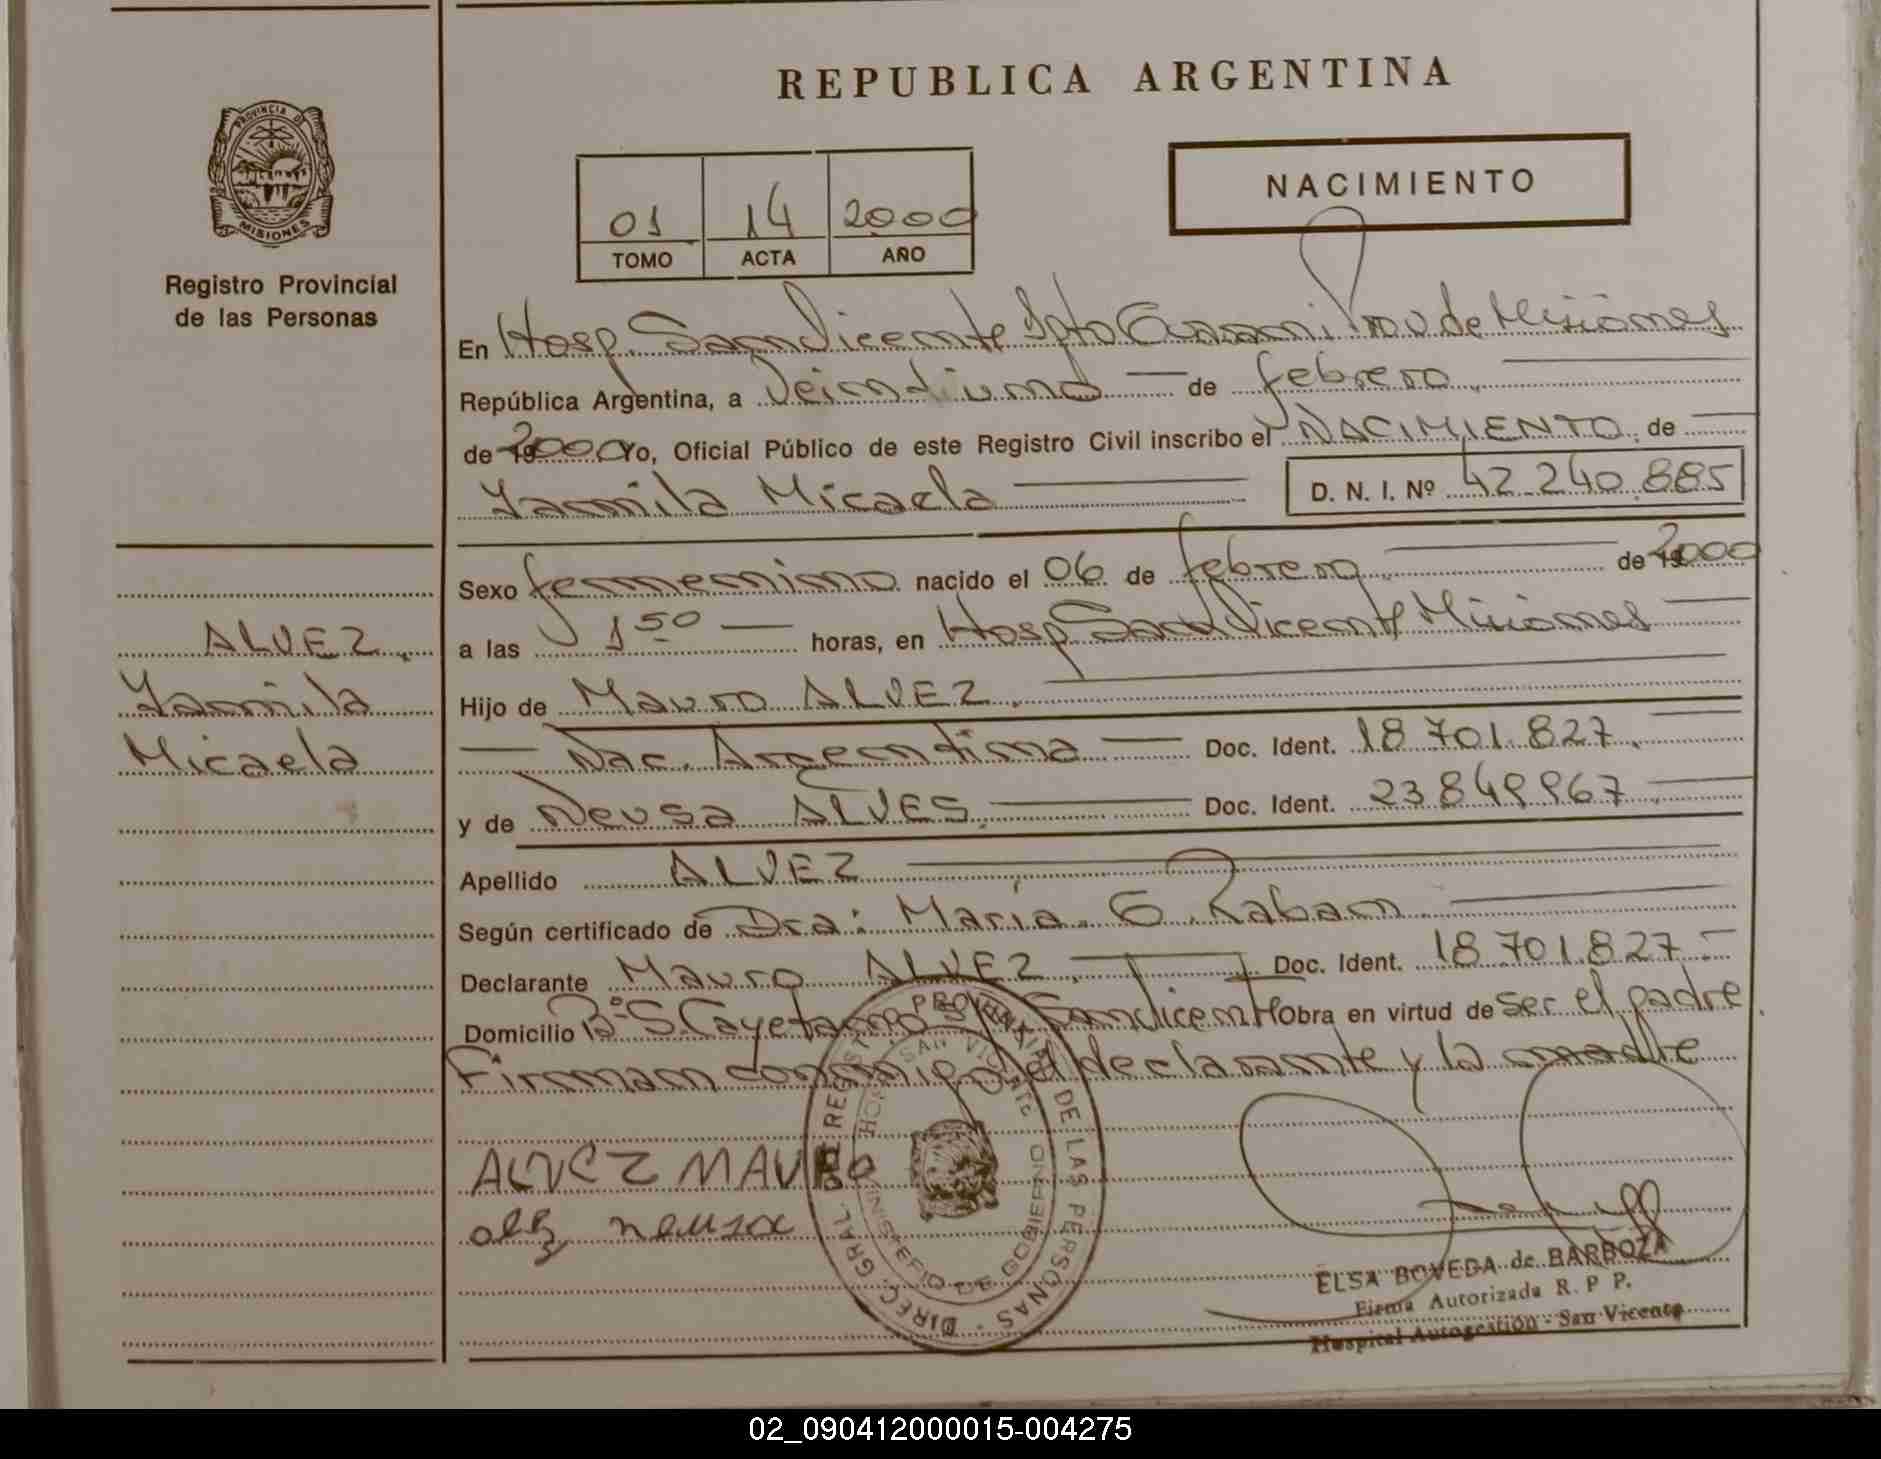 REPUBLICA ARGENTINA
PROVINCIA DE
MISIONES
Registro Provincial
de las Personas
NACIMIENTO
01 14 2000
TOMO ACTA AÑO
En Hosp. San Vicente Dpto Guarani Prov de Misiones
República Argentina, a Veintiuno de febrero
de 2000 Yo, Oficial Público de este Registro Civil inscribo el NACIMIENTO de
Yamila Micaela D. N. I. Nº 42 240.885
Sexo femenino nacido el 06 de febrero de 2000
a las 1 50 horas, en Hosp San Vicente Misiones
ALVEZ,
Yamila
Micaela
Hijo de Mauro ALVEZ.
Nac. Argentina Doc. Ident. 18 701.827
y de Neusa ALVES. Doc. Ident. 23 849 967
Apellido ALVEZ
Según certificado de Dra: María. G. Raban
Declarante Mauro ALVEZ. Doc. Ident. 18 701.827
Domicilio Bº S. Cayetano San Vicente Obra en virtud de ser el padre
Firman conmigo el declarante y la madre
ALVEZ MAURO
neusa
DIREC. GRAL. DEL REGIST. PROVINCIAL DE LAS PERSONAS
SAN VICENTE
MINISTERIO DE GOBIERNO
ELSA BOVEDA de BARBOZA
Firma Autorizada R. P P.
Hospital Autogestión - San Vicente
02_090412000015-004275